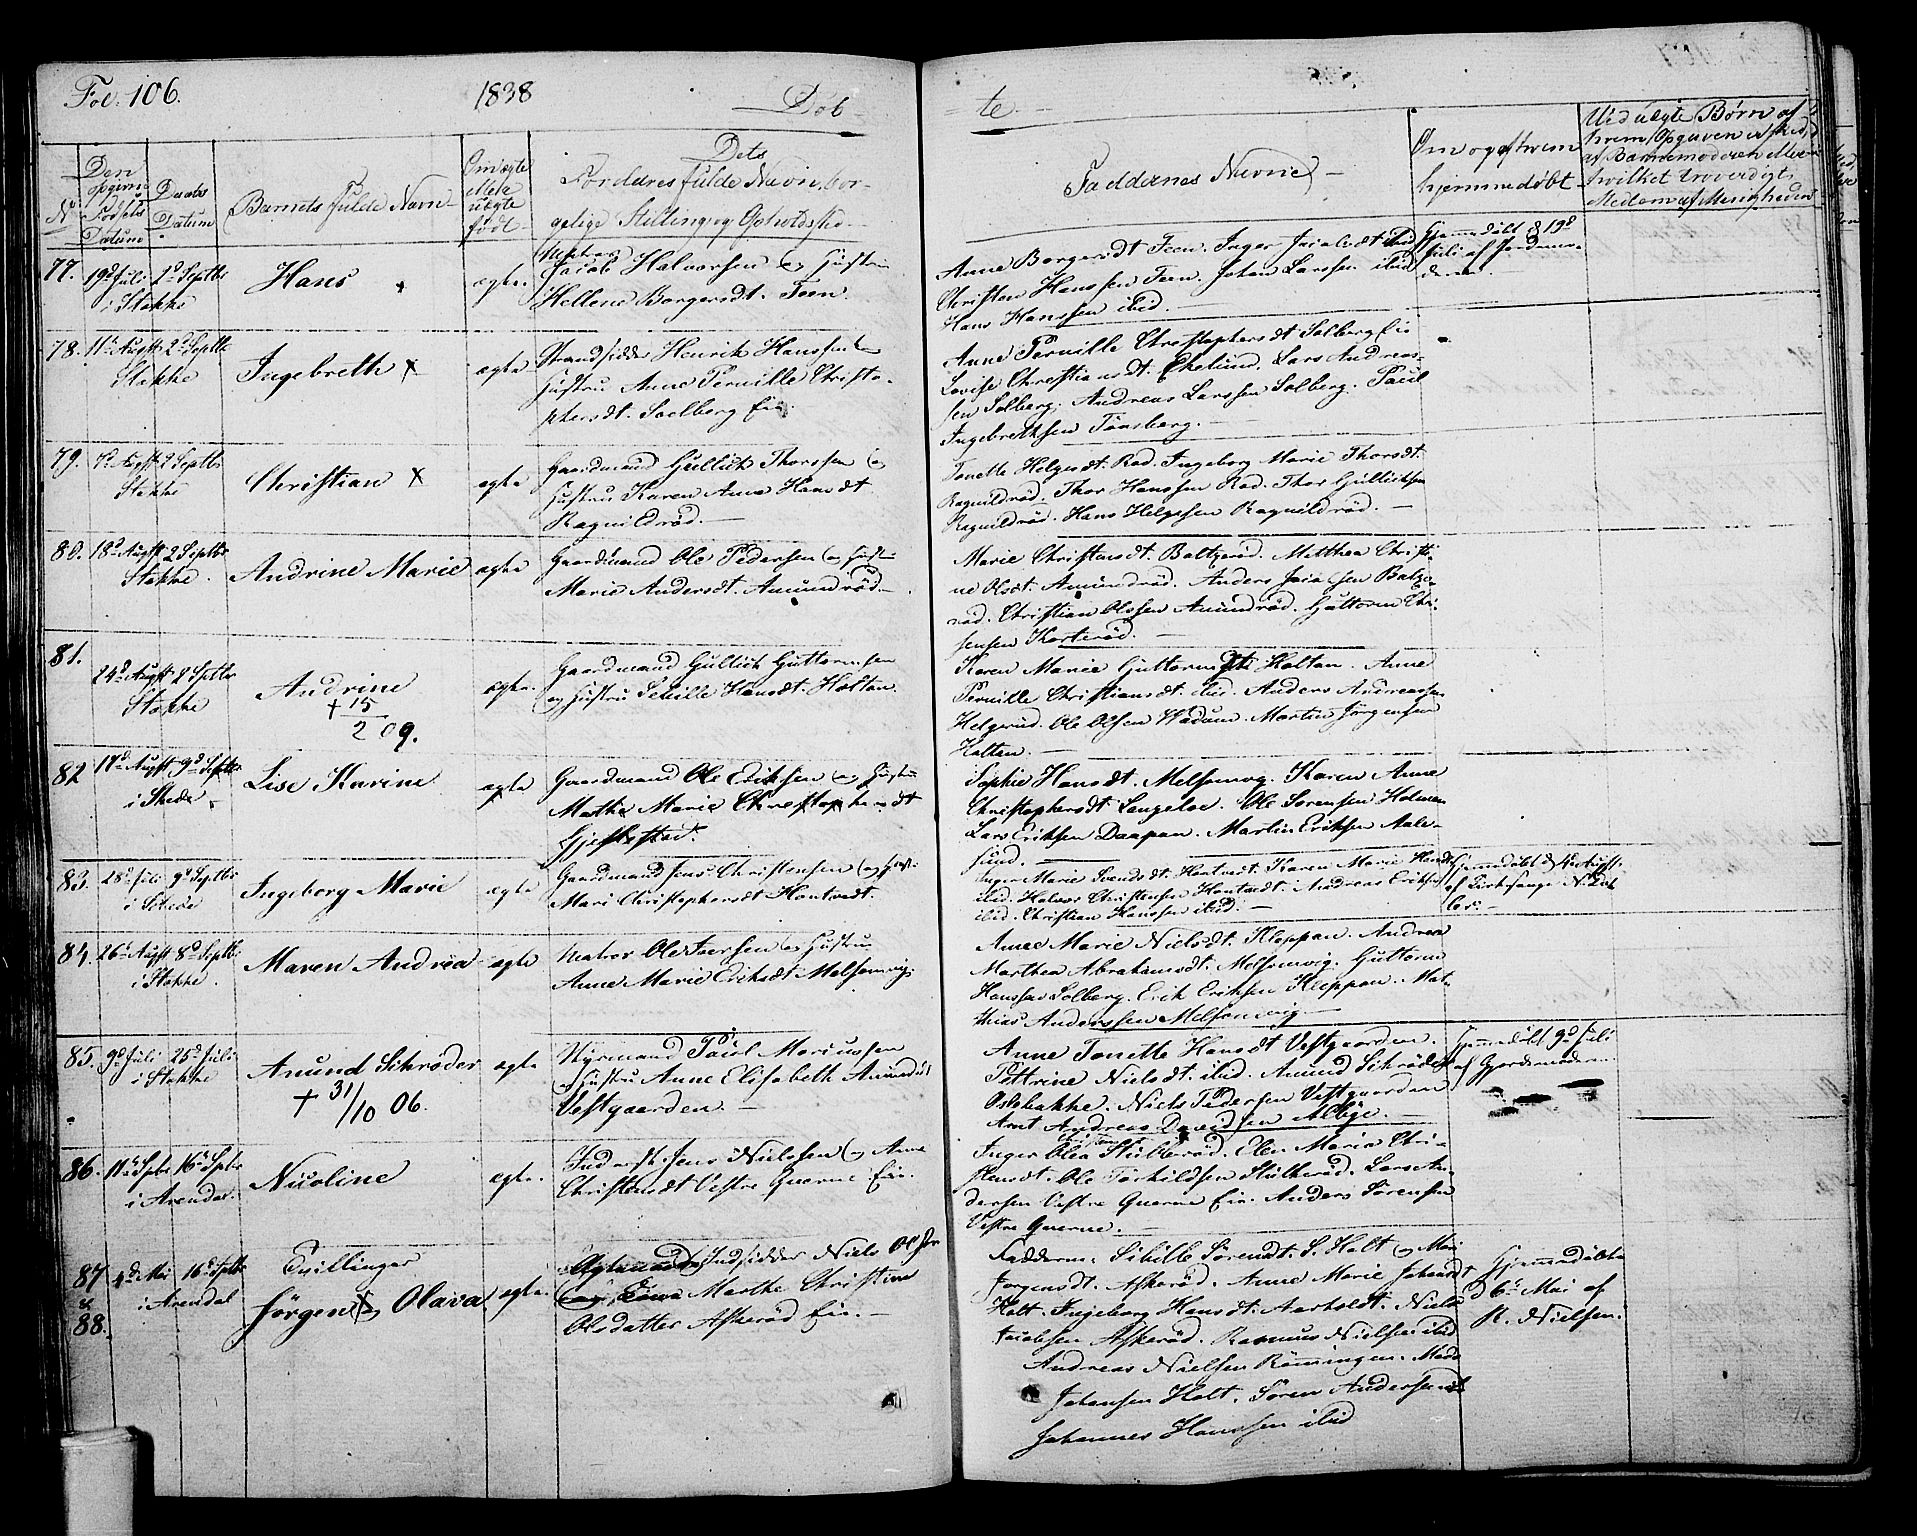 Fol. 106.
1838
Döb-
-te.
Den
opgivne
Fødsels
Datum
No
Daabs
Datum
Barnets fulde Navn
Om ægte
eller
uægte
født
Dets
Forældres fulde Navn, bor-
gelige Stilling og Opholdssted
Faddernes Navne
Om og af hvem
hjemmedøbt
Ved uægte Børn af
77. 19d Juli 2d Septbr
i Stokke
Hans
ægte
Jacob Halvorsen og Hustru
Hellene Borgersdt. Feen.
Anne Borgersdt Feen. Inger Jacobsdt ibid
Christen Hanssen Feen. Johan Larssen ibid
Hans Hanssen ibid.
Hjemmedøbt d 19d
Juli af Jordmo-
deren
78. 11te Augst 2d Septbr
Stokke
Ingebreth x
ægte
Strandsidder Henrik Hanssen &
Hustru Anne Pernille Christo-
phersdt. Soelberg Eie
Anne Pernille Christophersdt Solberg Eie
Lovise Christiansdt. Lars Andreas-
sen Solberg. Andreas Larssen Solberg. Paul
Ingebrethsen Tønsberg.
79. Augst 2 Septbr
Stokke
Christian x
ægte
Gaardmand Gullich Thorssen &
Hustru Karen Anne Hansdt
Ragnildrød.
Tonette Helgesdt. Rød. Ingeborg Marie Thorsdt.
Ragnildrød. Thor Hanssen Rød. Thor Gullichsen
Ragnildrød. Hans Helgesen Ragnildrød.
80. 18d Augst 2 Septbr
Stokke.
Andrine Marie
ægte
Gaardmand Ole Pedersen & Hustru
Marie Andersdt. Amundrød.
Marie Christensdt. Baltzerød. Matthea Christi-
ne Olsdt. Amundrød. Anders Jacobsen Baltze-
rød. Christian Olssen Amundrød. Guttorm Chri-
sensen
81. 24d Augst 2 Septbr
Stokke
Andrine
+ 15
2 09.
ægte.
Gaardmand Gullich Guttormsen
og Hustru Sebille Hansdt. Holtan.
Karen Marie Guttormsdt Holtan. Anne
Pernille Christiansdt. ibid. Anders Andreassen
Helgerød. Ole Olsen Wadum. Martin Jørgensen
Holtan.
82 17d Augst 9d Septbr
i Skede
Lise Karine
ægte
Gaardmand Ole Eriksen & Hustru
Mathe Marie Christophersdt
Gjestestad.
Sophie Hansdt. Melsomvig. Karen Anne
Christophersdt Langeloe. Ole Sørensen Holmen
Lars Eriksen Daapan. Martin Eriksen Aale-
sund.
83. 28d Juli 9d Septbr
i Skede
Ingeborg Marie
ægte
Gaardmand Jens Christensen & Hust.
Mari Christophersdt Hontvedt.
Inger Marie Svendsdt. Hontvedt. Karen Marie Hansdt
ibid. Halvor Christensen Hontvedt. Andreas Eriksen
ibid. Christian Hanssen ibid.
Hjemmedøbt d 4de Augst
af Kirkesanger
84. 26d Augst 8d Septbr
i Stokke.
Maren Andrea
ægte
Matros Ole Iversen & Hustru
Anne Marie Eriksdt. Melsomvig
Anne Marie Nielsdt. Kleppan. Andrea
Marthea Abrahamsdt. Melsomvig. Guttorm
Hanssen Solberg. Erik Eriksen Kleppan. Mat-
thias Anderssen Melsomvig.
85. 9d Juli 25d Juli
i Stokke
Amund Schrøder
+ 31/10 06.
ægte
Styrmand Paul Mariussen
og Hustru Anne Elisabeth Amundsdt
Vestgaarden.
Anne Tonette Hansdt Vestgaarden.
Pettrine Nielsdt. ibid. Amund Schrøder
Oslebakke. Niels Pedersen Vestgaarden
Arnt Andreas Davidsen Albøe.
Hjemmedøbt 9d Juli
af Gjordemoderen
86. 11d Spbr 16d Spbr
i Arendal.
Nicoline
ægte.
Inderst Jens Nielssen & Anne
Christensdt Vestre Qverne Eie.
Inger Olea Stulterød. Elen Maria Chri-
stensdt. Ole Torkildsen Stulterød. Lars An-
dersen Vestre Qverne Eie. Anders Sørensen
Vestre Qverne.
87
&
88.
4d Mai 16d Septbr
i Arendal
Tvillinger
Jørgen & Olava
ægte.
Indsidder Niels Olsen
Marthe Christine
Olsdatter Askerød Eie.
Fadderne: Sibille Sørensdt. S. Holt & Mari
Jørgensdt. Askerød. Anne Marie Johansdt
Holt. Ingeborg Hansdt. Aarholdt. Niels
Jacobsen Askerød. Rasmus Nielsen ibid
Andreas Nielsen Rønningen. Mads
Johansen Holt. Søren Andersen ibid
Johannes Hanssen ibid
Hjemmedøbte
d 6te Mai af
R. Nielsen.